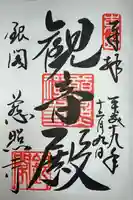 奉拝
平成十九年
十二月九日
観音殿
銀閣
慈照寺